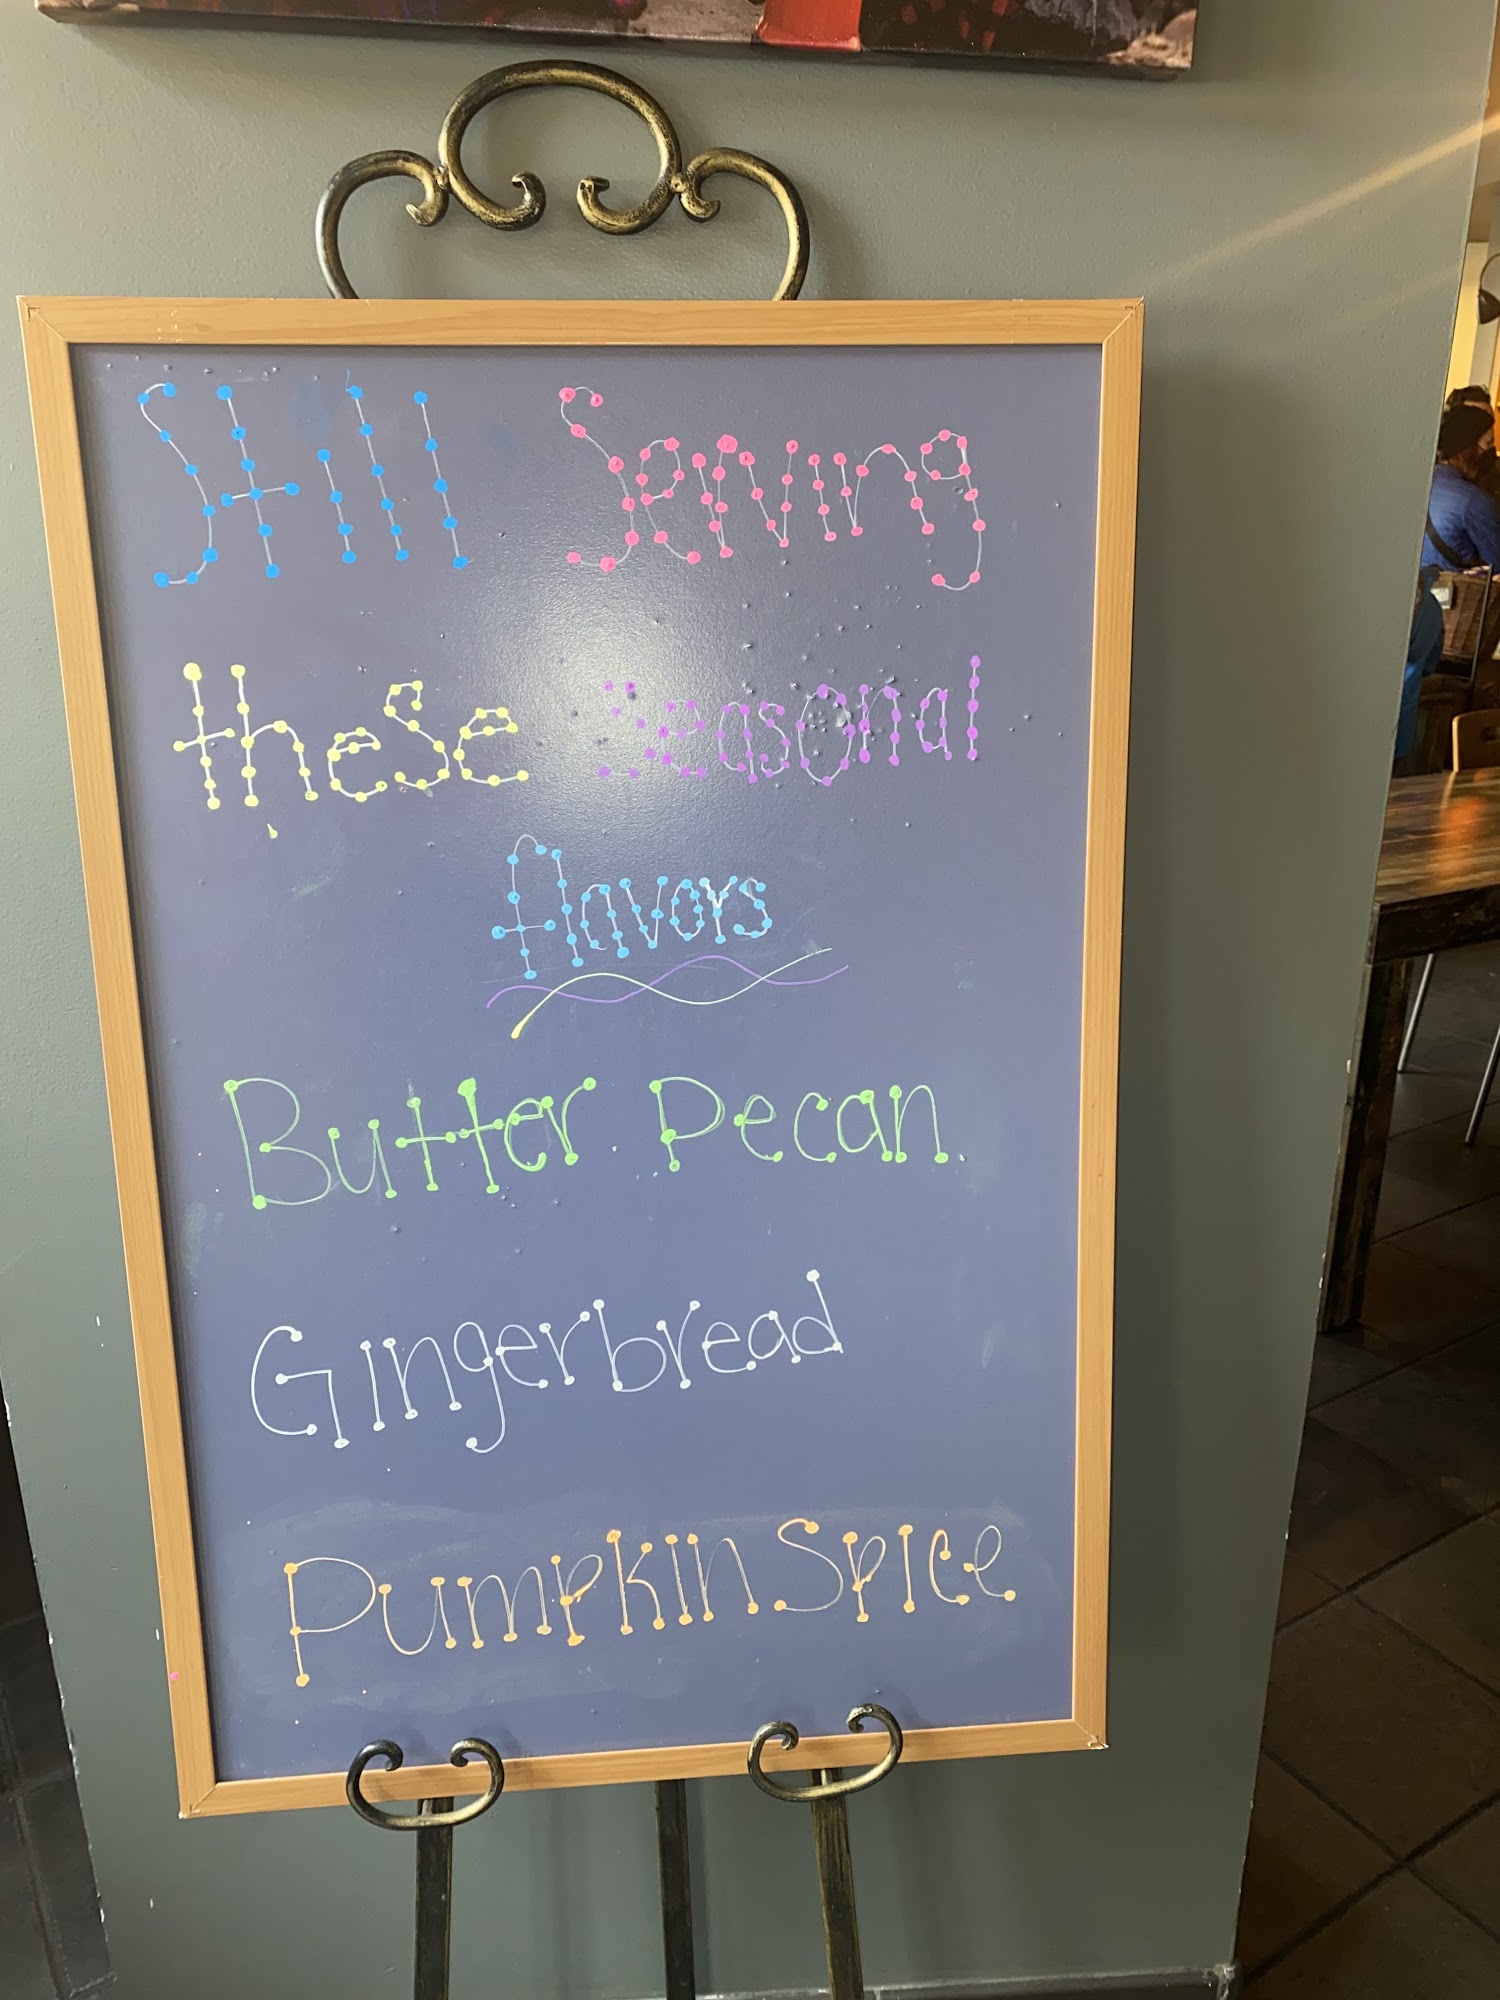 Still Serving
these Seasonal
flavors
Butter Pecan
Gingerbread
Pumpkin Spice